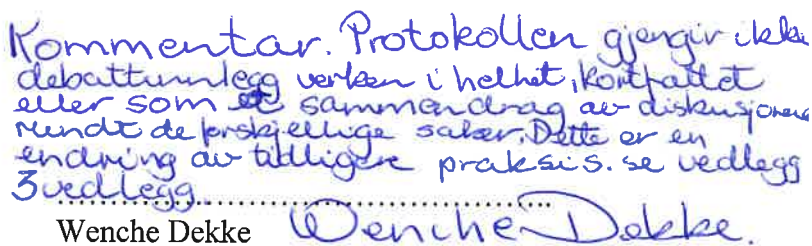 Kommentar. Protokollen gjengir ikke
debattinnlegg verken i helhet, kortfattet
eller som sammendrag av diskusjonene
rundt de forskjellige saker. Dette er en
endring av tidligere praksis. se vedlegg
3 vedlegg.
Wenche Dekke Wenche Dekke.